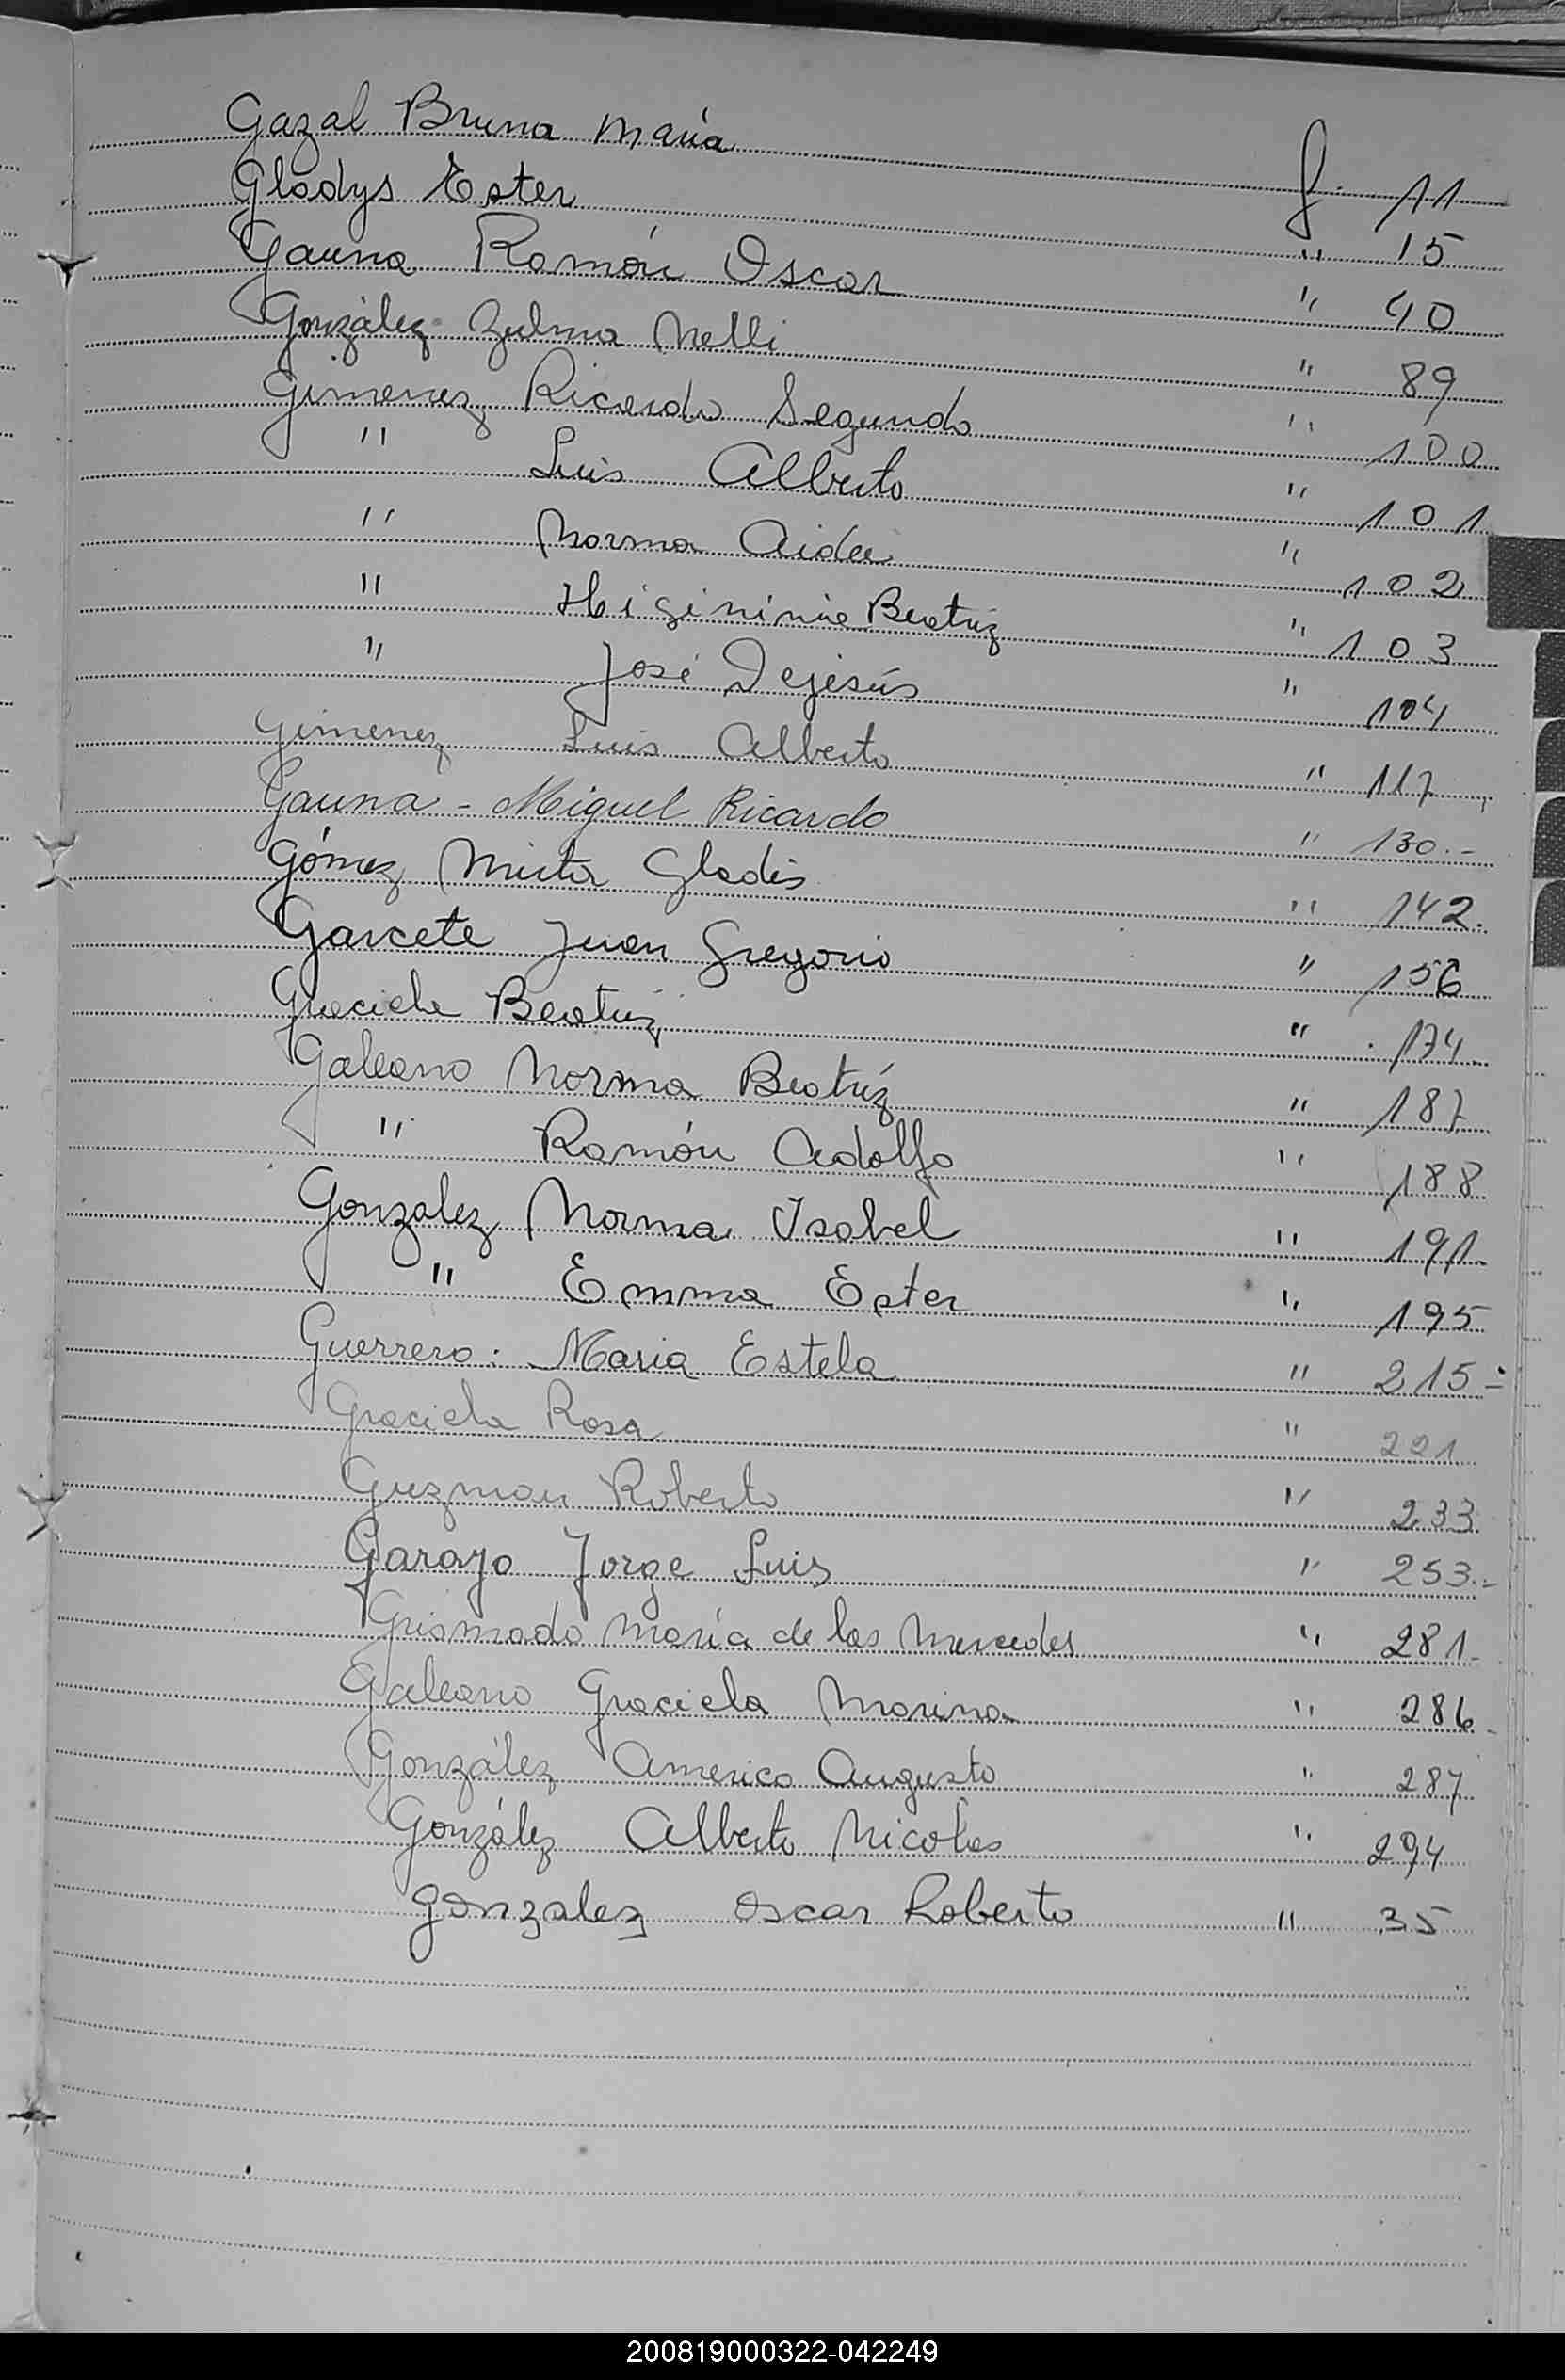 Gazal Bruna María f. 11
Gladys Ester " 15
Gauna Ramón Oscar " 40
González Zulma Nelli " 89
Gimenez Ricardo Segundo " 100
" Luis Alberto " 101
" Norma Aidee " 102
" Higininia Beatriz " 103
" José Dejesús " 104
Gimenez Luis Alberto " 117
Gauna - Miguel Ricardo " 130.-
Gómez Mirta Gladis " 142.
Garcete Juan Gregorio " 156
Graciela Beatriz " 174
Galeano Norma Beatríz " 187
" Ramón Adolfo " 188
Gonzalez Norma Isabel " 191
" Emma Ester " 195
Guerrero: Maria Estela " 215.-
Graciela Rosa " 221
Guzman Roberto " 233
Garayo Jorge Luis " 253.-
Grismado María de las Mercedes " 281
Galeano Graciela Marina " 286
González Americo Augusto " 287
González Alberto Nicolas " 294
Gonzalez Oscar Roberto " 35
200819000322-042249